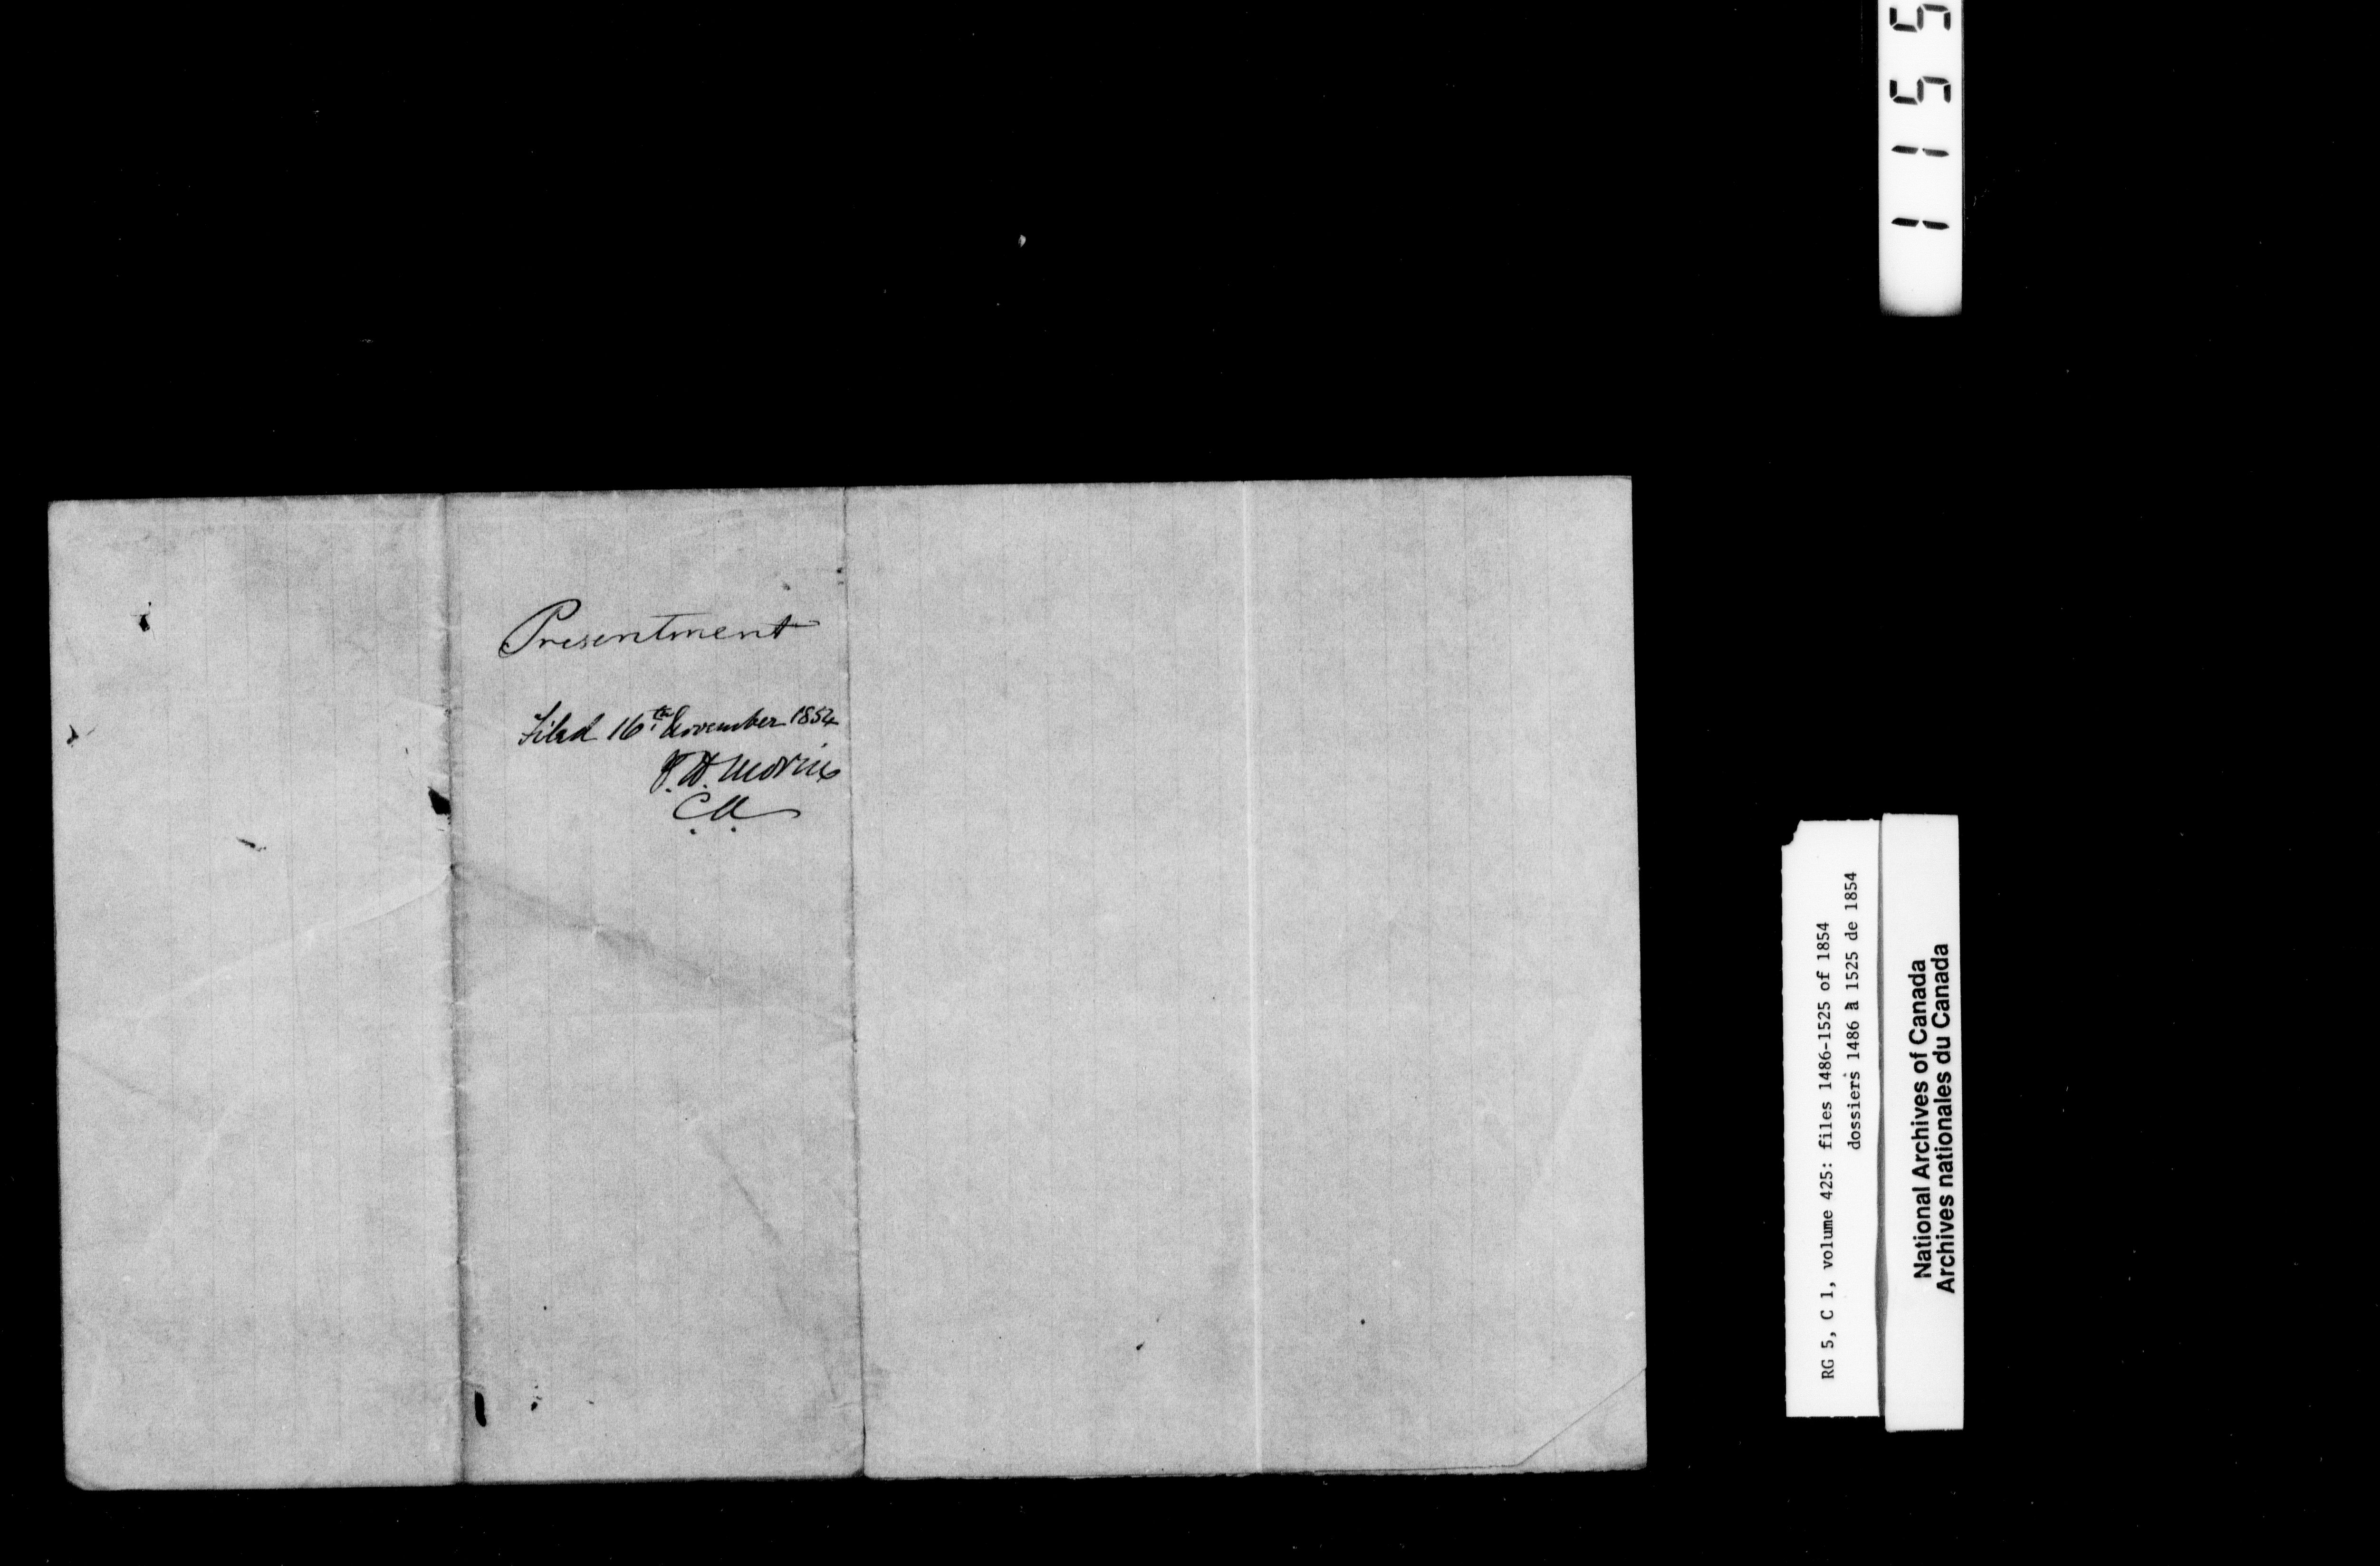 Presentment
Filed 16th November 1854
C.A.
1155
RG 5, C 1, volume 425: files 1486-1525 of 1854
dossiers 1486 à 1525 de 1854
National Archives of Canada
Archives nationales du Canada